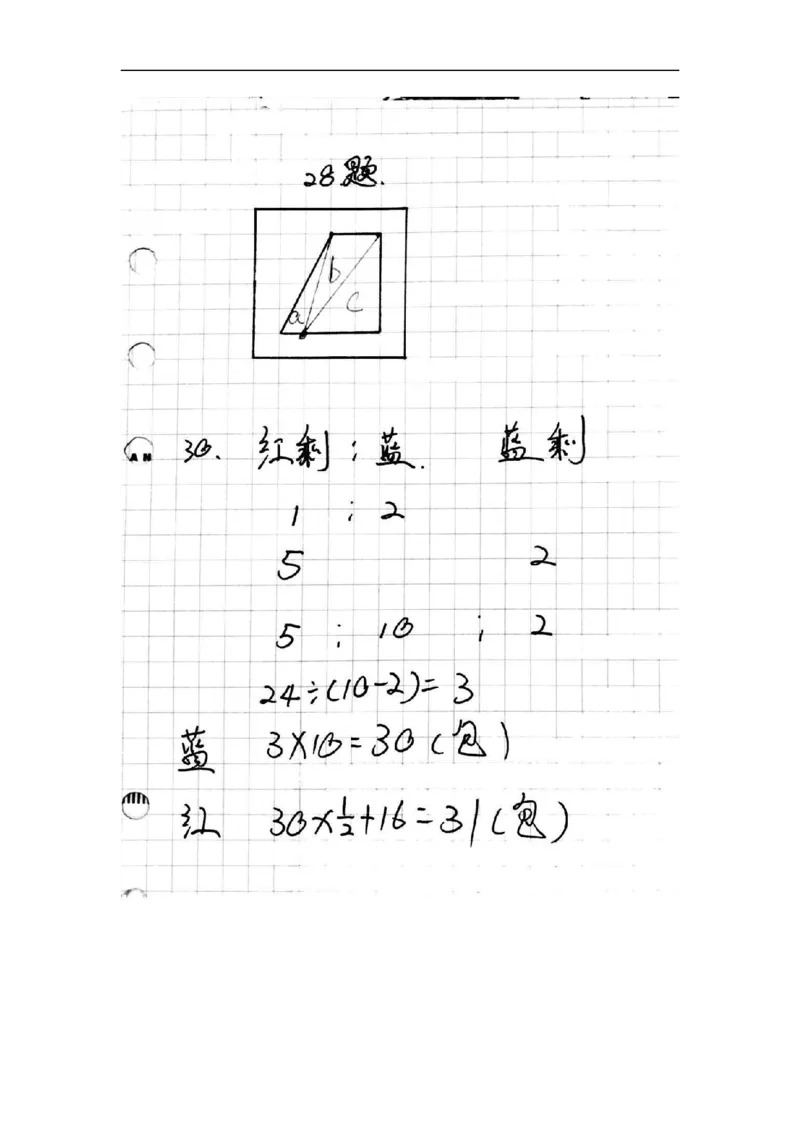 28题.
b
a
c
30. 红剩 : 蓝. 蓝剩
1 : 2
5 2
5 : 10 : 2
24÷(10-2)=3
蓝 3×10=30(包)
红 30×1/2+16=31(包)